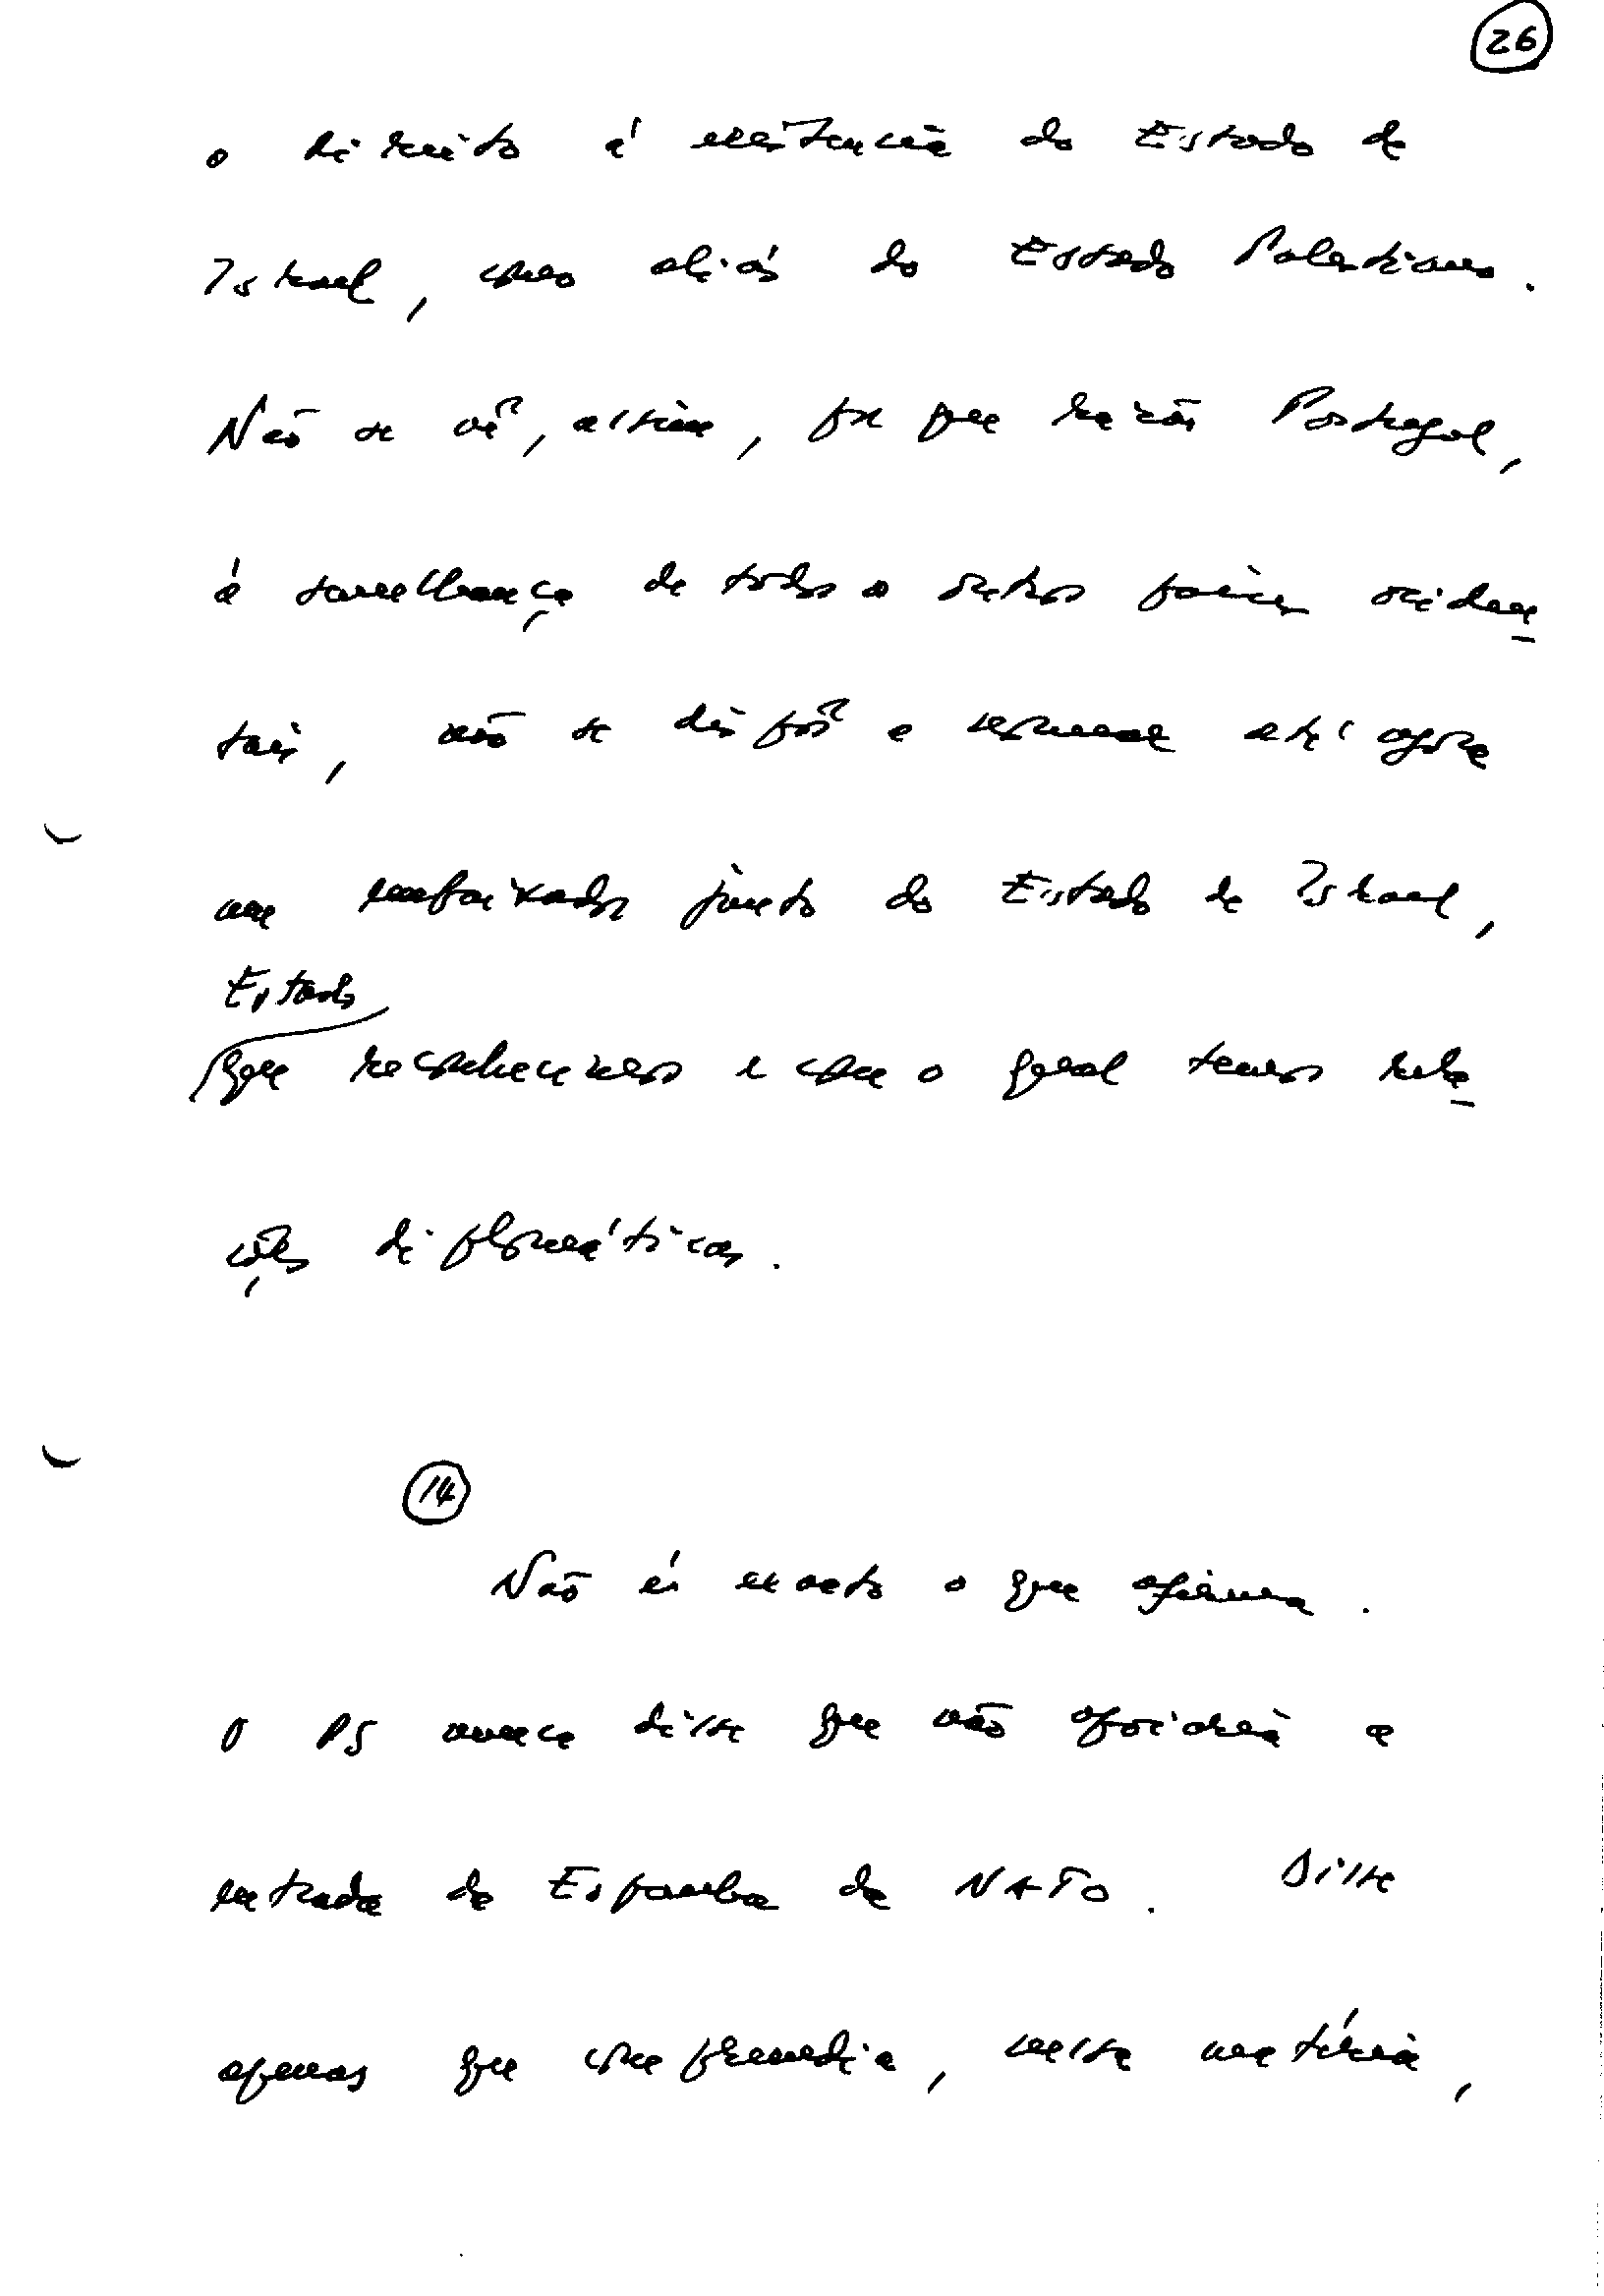 26
o direito à existência do Estado de
Israel, como aliás do Estado Palestiano.
Não se vê, assim, por que razão Portugal,
à semelhança de todos os outros países ociden
tais, não se dispôs a nomear até agora
um embaixador junto do Estado de Israel,
Estado
que reconhecemos e com o qual temos rela
ções diplomáticas.
14
Não é exacto o que afirma.
O PS nunca disse que não apoiaria a
entrada da Espanha da NATO. Disse
apenas que compreendia, nesta matéria,